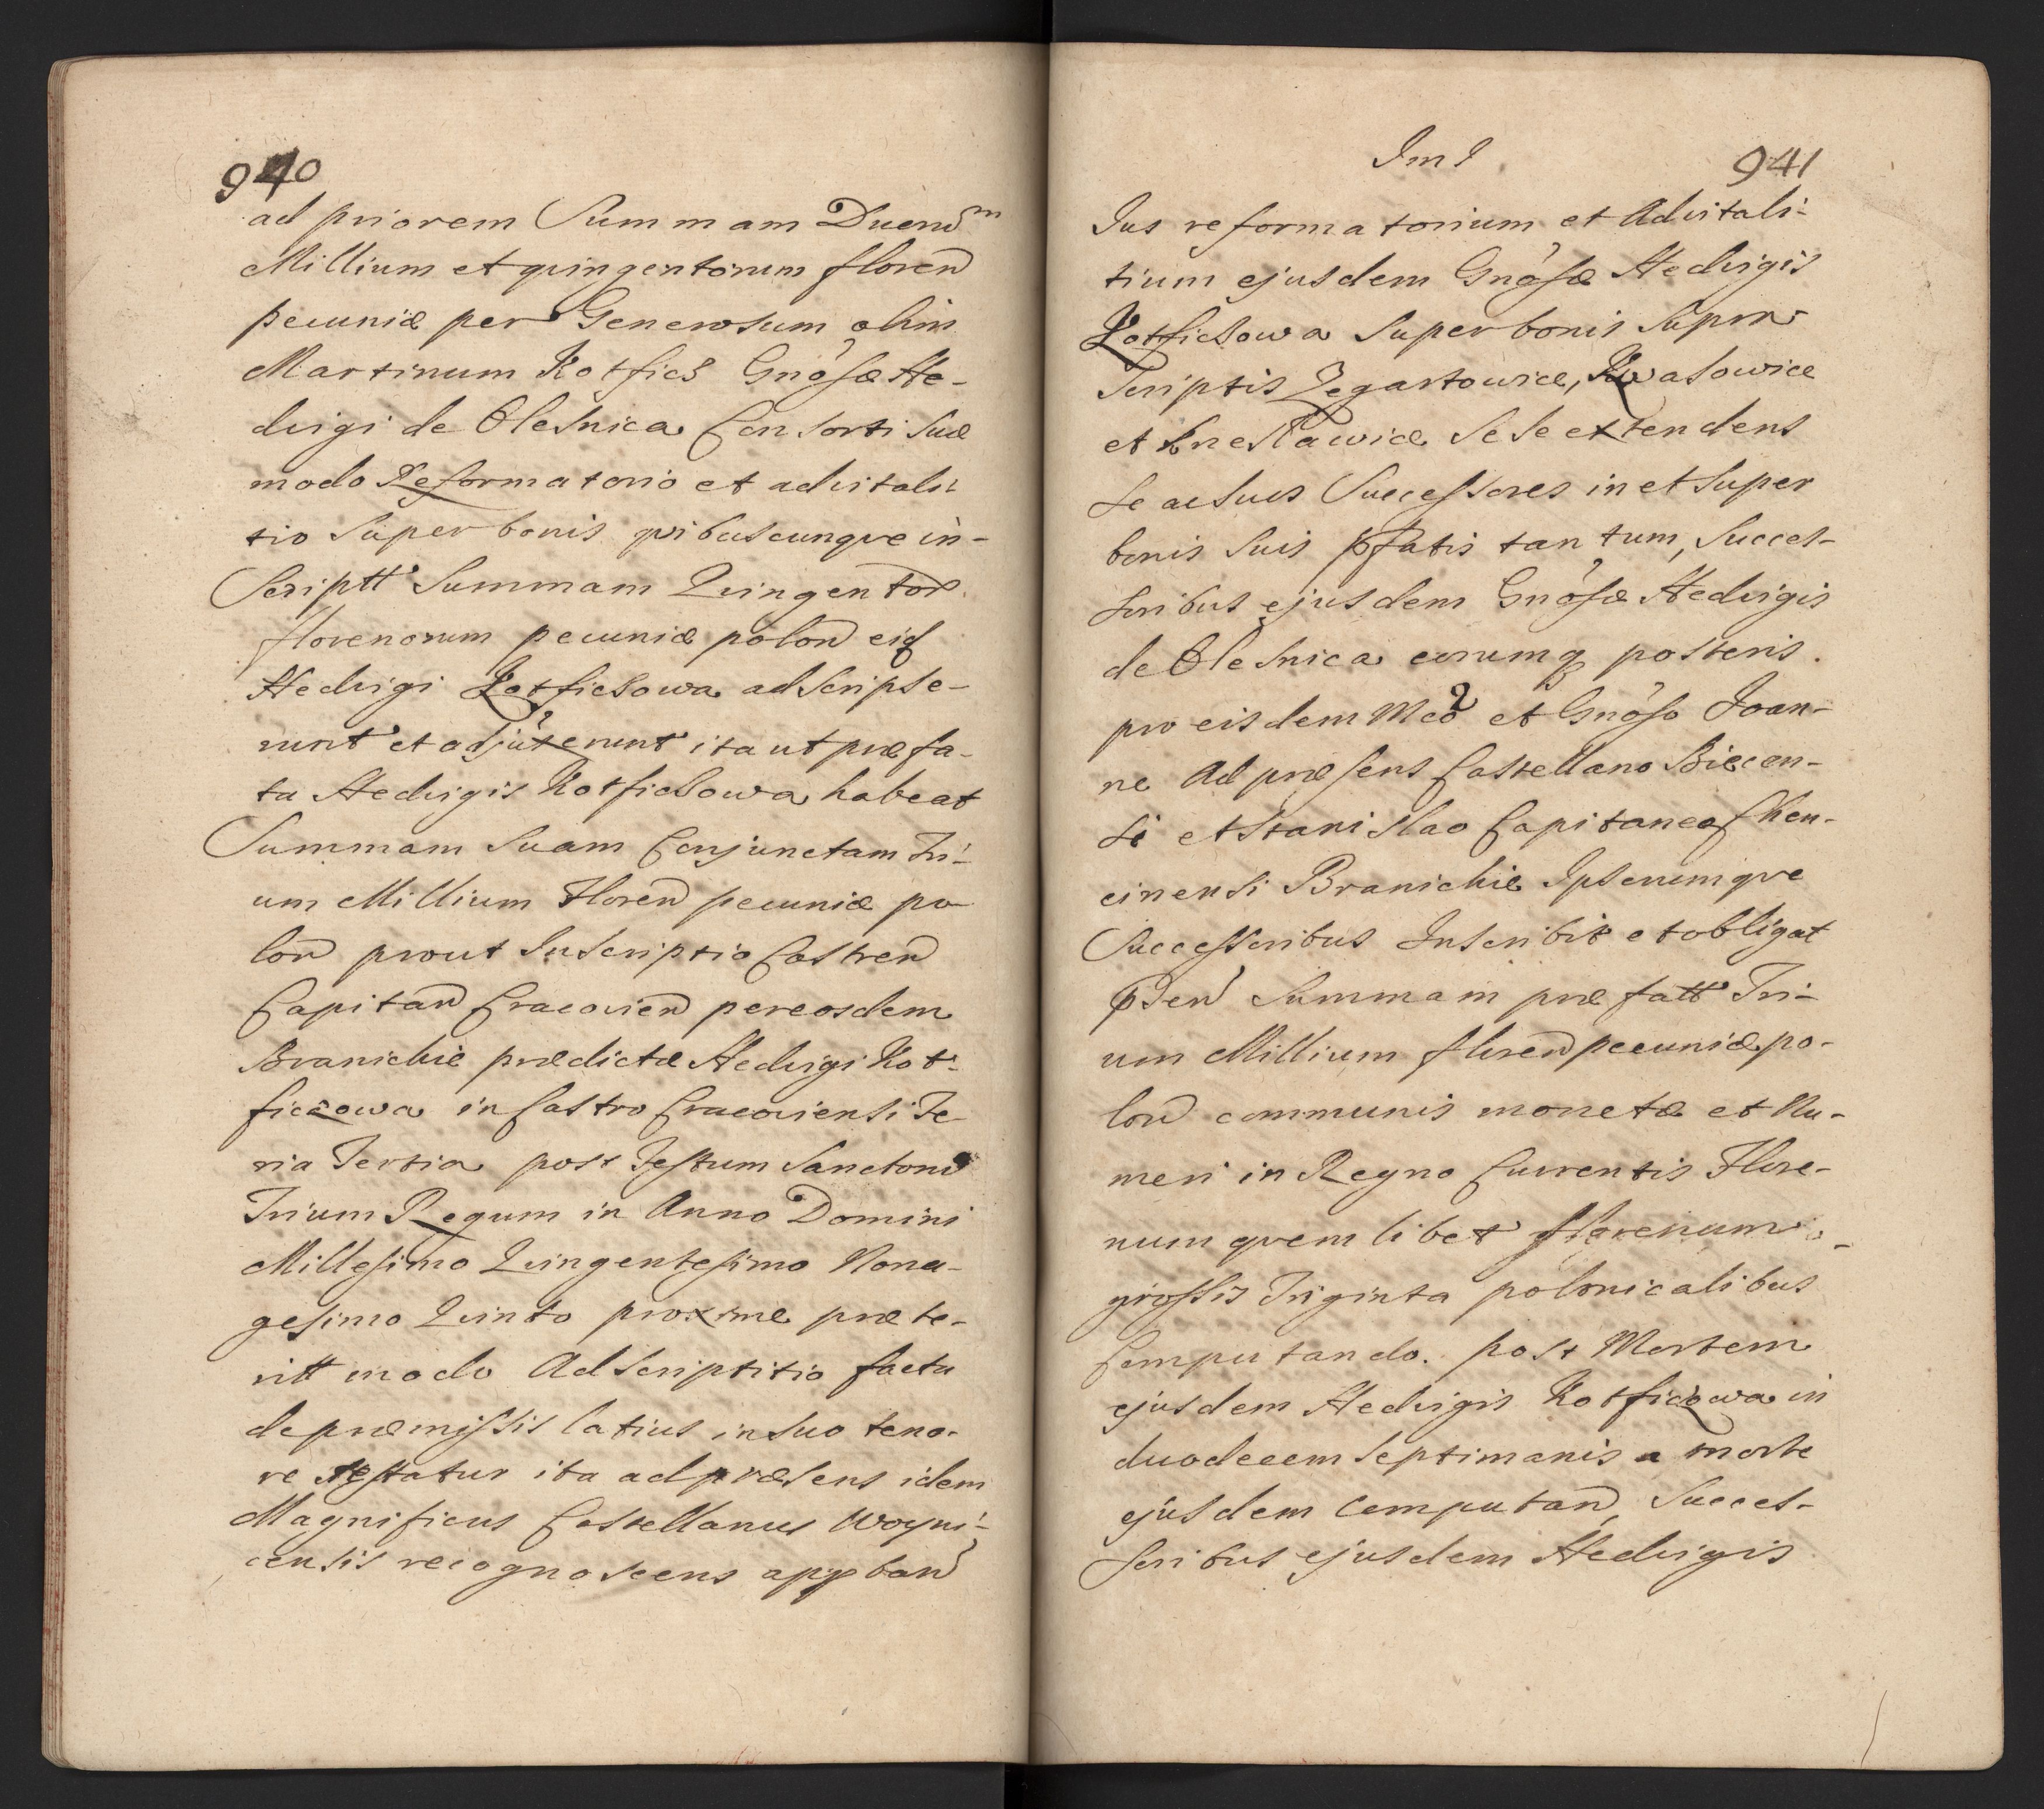 940
ad priorem Summam Duenõm
Millium et quingentorum floren
pecuniæ per Generosum olim
Martinum Kotficz Gnosæ He-
dvigi de Olesnica Consorti Suæ
modo Reformatorio et advitali-
tio Super bonis quibuscunqve in-
Scriptt Summam Quingentor
florenorum pecuniæ polon eid
Hedvigi Kotficzowa adscripse-
runt et adjuxerunt ita ut præfa-
ta Hedvigis Kotficzowa habeat
Summam Suam Conjunctam Tri-
um Millium Floren pecuniæ po-
lon prout Inscriptio Castren
Capitan Cracovien per eosdem
Branickie prædictæ Hedvigi Kot-
ficzowa in Castro Cracoviensi Fe
ria Tertia post Festum Sanctorũ
Trium Regum in Anno Domini
Millesimo Quingentesimo Nona-
gesimo Quinto proxime præte-
ritt modo Adscriptitio facta
de præmissis latius in Suo teno-
re testatur ita ad præsens idem
Magnificus Castellanus Woyni-
censis recognoscens appban
941
Jus reformatorium et Advitali-
tium ejusdem Gnosæ Hedvigis
Kotficzowa Super bonis Supra
Scriptis Zegartowice, Kwasowice
et Sese extendens
Se ac Suos Successores in et Super
bonis Suis pfatis tantum, Succes-
soribus ejusdem Gnosæ Hedvigis
de Olesnica eorumq posteris.
pro eisdem Mco et Gnoso Joan-
ne Ad præsens Castellano Biecen-
si et Stanislao Capitaneo Chen-
cinensi Branickie Ipsorumqve
Successoribus Inscribit et obligat
pden Summam præfatt Tri-
um Millium floren pecuniæ po-
lon communis monetæ et Nu-
meri in Regno Currentis Flore-
num qvemlibet florenum
grossis Triginta polonicalibus
Computando. post Mortem
ejusdem Hedvigis Kotficzowa in
duodecem Septimanis a morte
ejusdem Computan, Succes-
soribus ejusdem Hedvigis